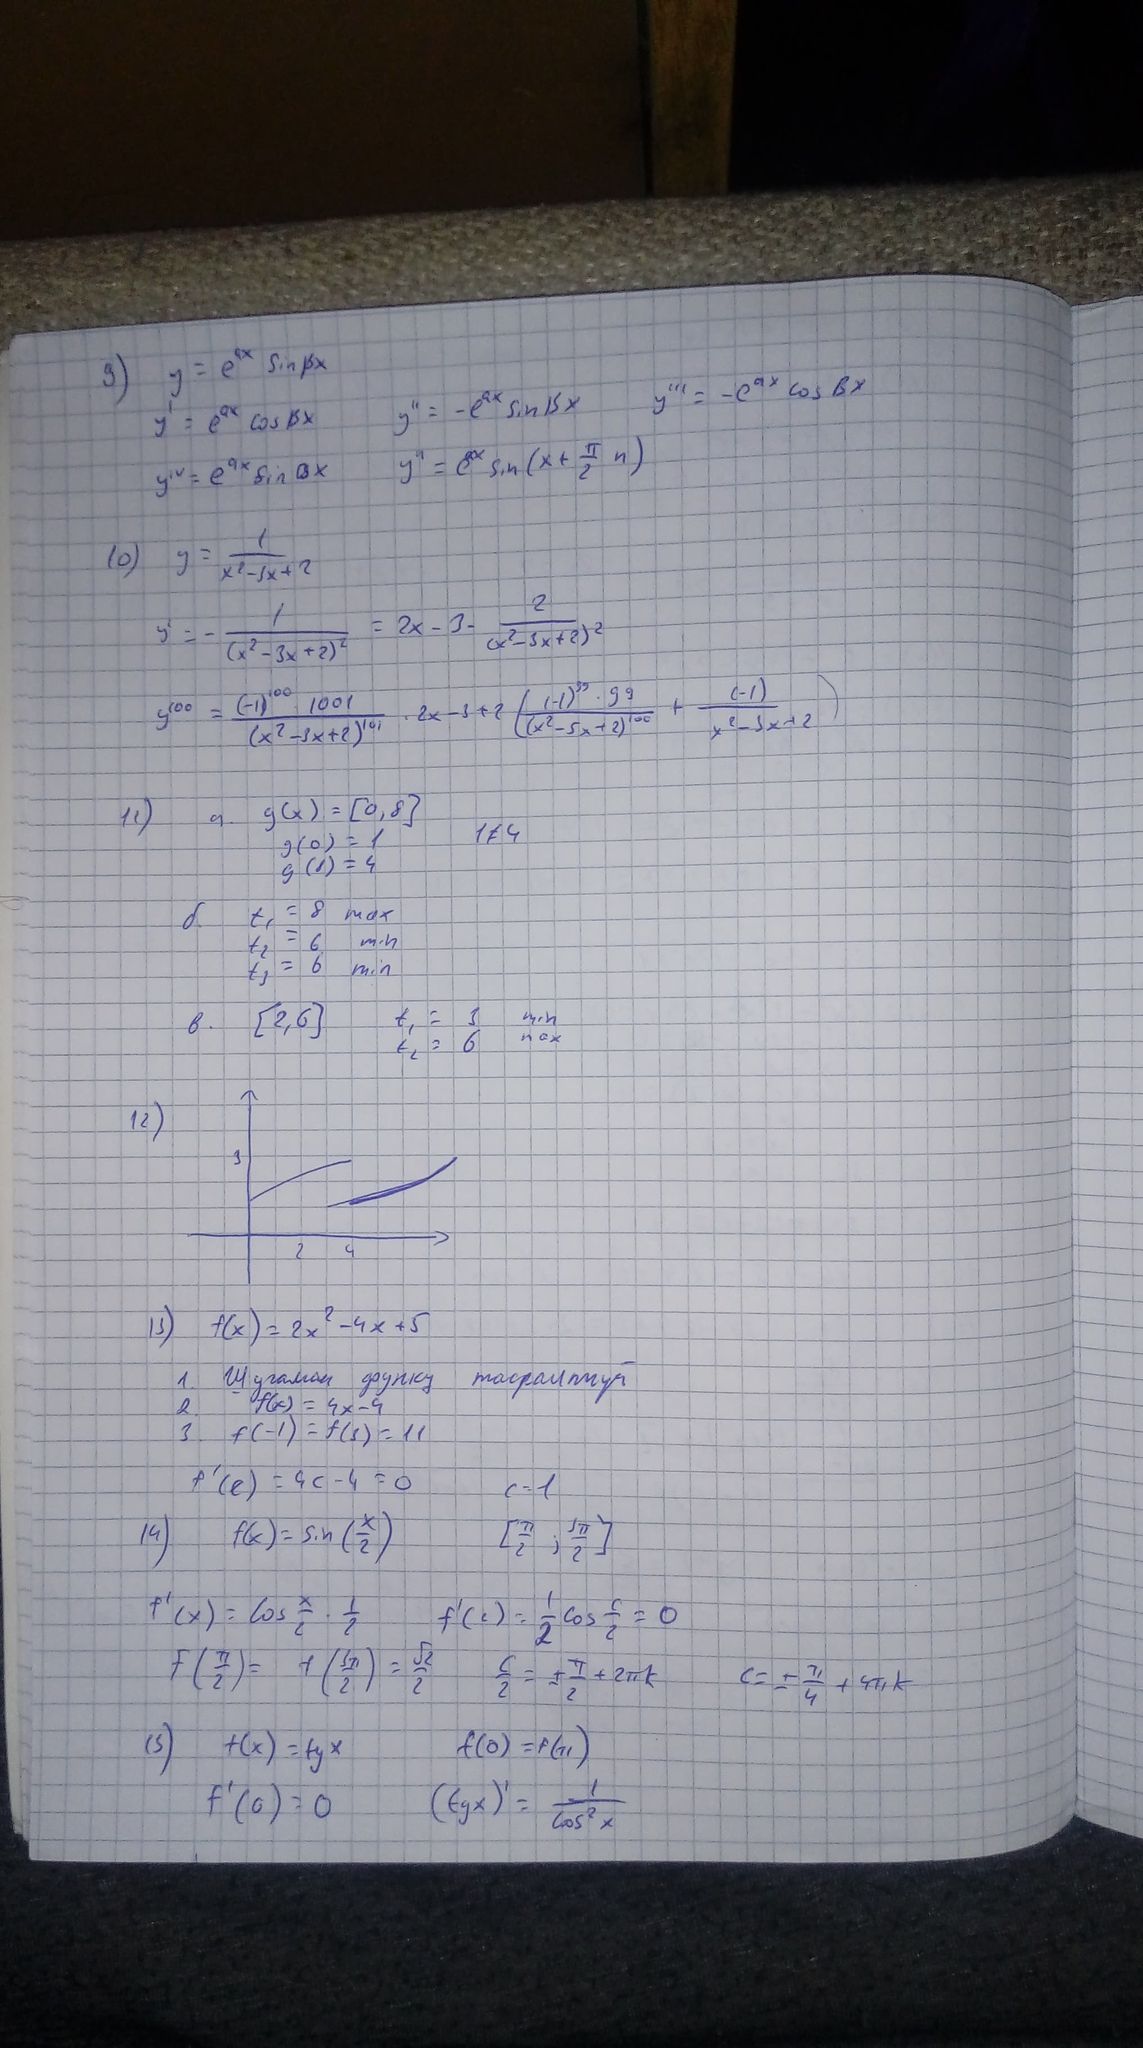 9) y = e^{ax} sin βx
y' = e^{ax} cos βx y'' = -e^{ax} sin βx y''' = -e^{ax} cos βx
y^{IV} = e^{ax} sin βx y^n = e^{ax} sin(x + π/2 n)
10) y = 1/(x²-3x+2)
y' = - 1/(x²-3x+2)² = 2x - 3 - 2/(x²-3x+2)²
y^{100} = (-1)^{100} 1001/(x²-3x+2)^{101} · 2x - 3 + 2 ((-1)^{99} · 99/(x²-5x+2)^{100} + (-1)/(x²-3x+2))
11) a. g(x) = [0,8]
g(0) = 1 1≠4
g(8) = 4
б. t₁ = 8 max
t₂ = 6 min
t₃ = 6 min
в. [2,6] t₁ = 3 min
t₂ = 6 max
12)
3
2 4
13) f(x) = 2x² - 4x + 5
1.
2. f(x) = 4x - 4
3. f(-1) = f(3) = 11
f'(c) = 4c - 4 = 0 c = 1
14) f(x) = sin(x/2) [π/2 ; 3π/2]
f'(x) = cos x/2 · 1/2 f'(c) = 1/2 cos c/2 = 0
f(π/2) = f(3π/2) = √2/2 c/2 = ± π/2 + 2πk c = ± π/4 + 4πk
15) f(x) = tg x f(0) = f(π)
f'(0) = 0 (tgx)' = 1/cos²x